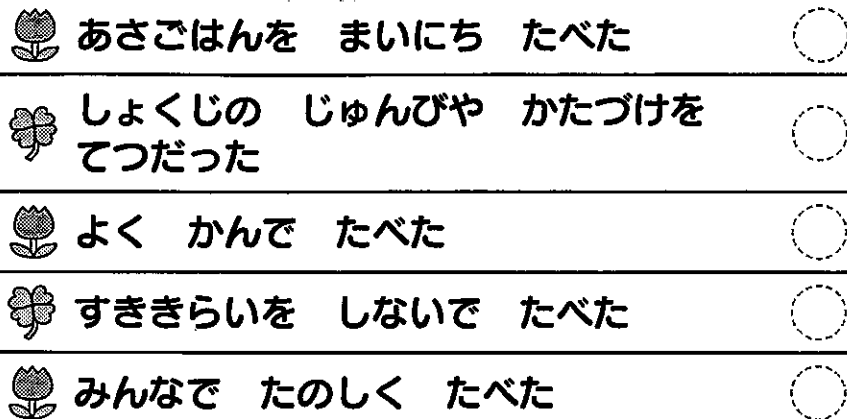 あさごはんを　まいにち　たべた
しょくじの　じゅんびや　かたづけを
てつだった
よく　かんで　たべた
すききらいを　しないで　たべた
みんなで　たのしく　たべた